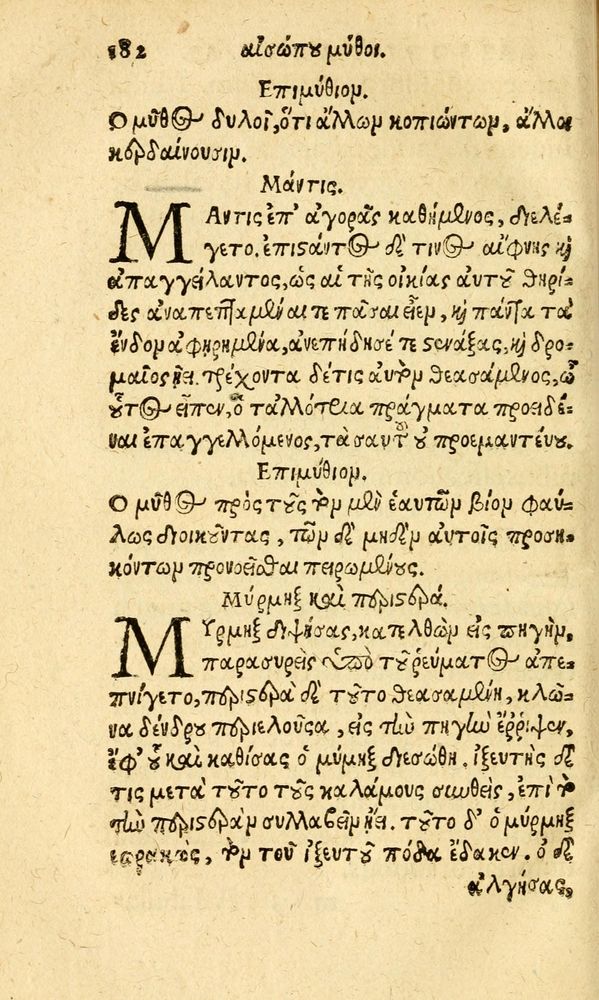 182 αἰσώπου μῦθοι.
Επιμύθιον.
Ο μῦθος δυλοῖ, ὅτι ἄλλων κοπιώντων, ἄλλοι
κερδαίνουσιν.
Μάντις.
ΜΑντις ἐπ' ἀγορᾶς καθήμενος, διελέ-
γετο. ἐπιστάντος δέ τινος αἴφνης καὶ
ἀπαγγείλαντος, ὡς αἱ τῆς οἰκίας αὐτοῦ θηρί-
δες ἀναπεπταμέναι τε πᾶσαι εἶεν, καὶ πάντα τὰ
ἔνδον ἀφῃρημένα, ἀνεπήδησέ τε στενάξας, καὶ δρο-
μαῖος ᾔει. τρέχοντα δέ τις αὐτὸν θεασάμενος, ὦ
οὗτος εἶπεν, ὁ τἀλλότρια πράγματα προειδέ-
ναι ἐπαγγελλόμενος, τὰ σαυτοῦ οὐ προεμαντεύου.
Επιμύθιον.
Ο μῦθος πρὸς τοὺς τὸν μὲν ἑαυτῶν βίον φαύ-
λως διοικοῦντας, τῶν δὲ μηδὲν αὐτοῖς προση-
κόντων προνοεῖσθαι πειρωμένους.
Μύρμηξ καὶ περιστερά.
ΜΥρμηξ διψήσας, κατελθὼν εἰς πηγὴν,
παρασυρεὶς ὑπὸ τοῦ ῥεύματος ἀπε-
πνίγετο, περιστερὰ δὲ τοῦτο θεασαμένη, κλῶ-
να δένδρου περιελοῦσα, εἰς τὴν πηγὴν ἔρριψεν,
ἐφ' οὗ καὶ καθίσας ὁ μύμηξ διεσώθη. ἰξευτὴς δέ
τις μετὰ τοῦτο τοὺς καλάμους συνθεὶς, ἐπὶ τὸ
τὴν περιστερὰν συλλαβεῖν ᾔει. τοῦτο δ' ὁ μύρμηξ
ἑωρακὼς, τὸν τοῦ ἰξευτοῦ πόδα ἔδακεν. ὁ δὲ
ἀλγήσας,